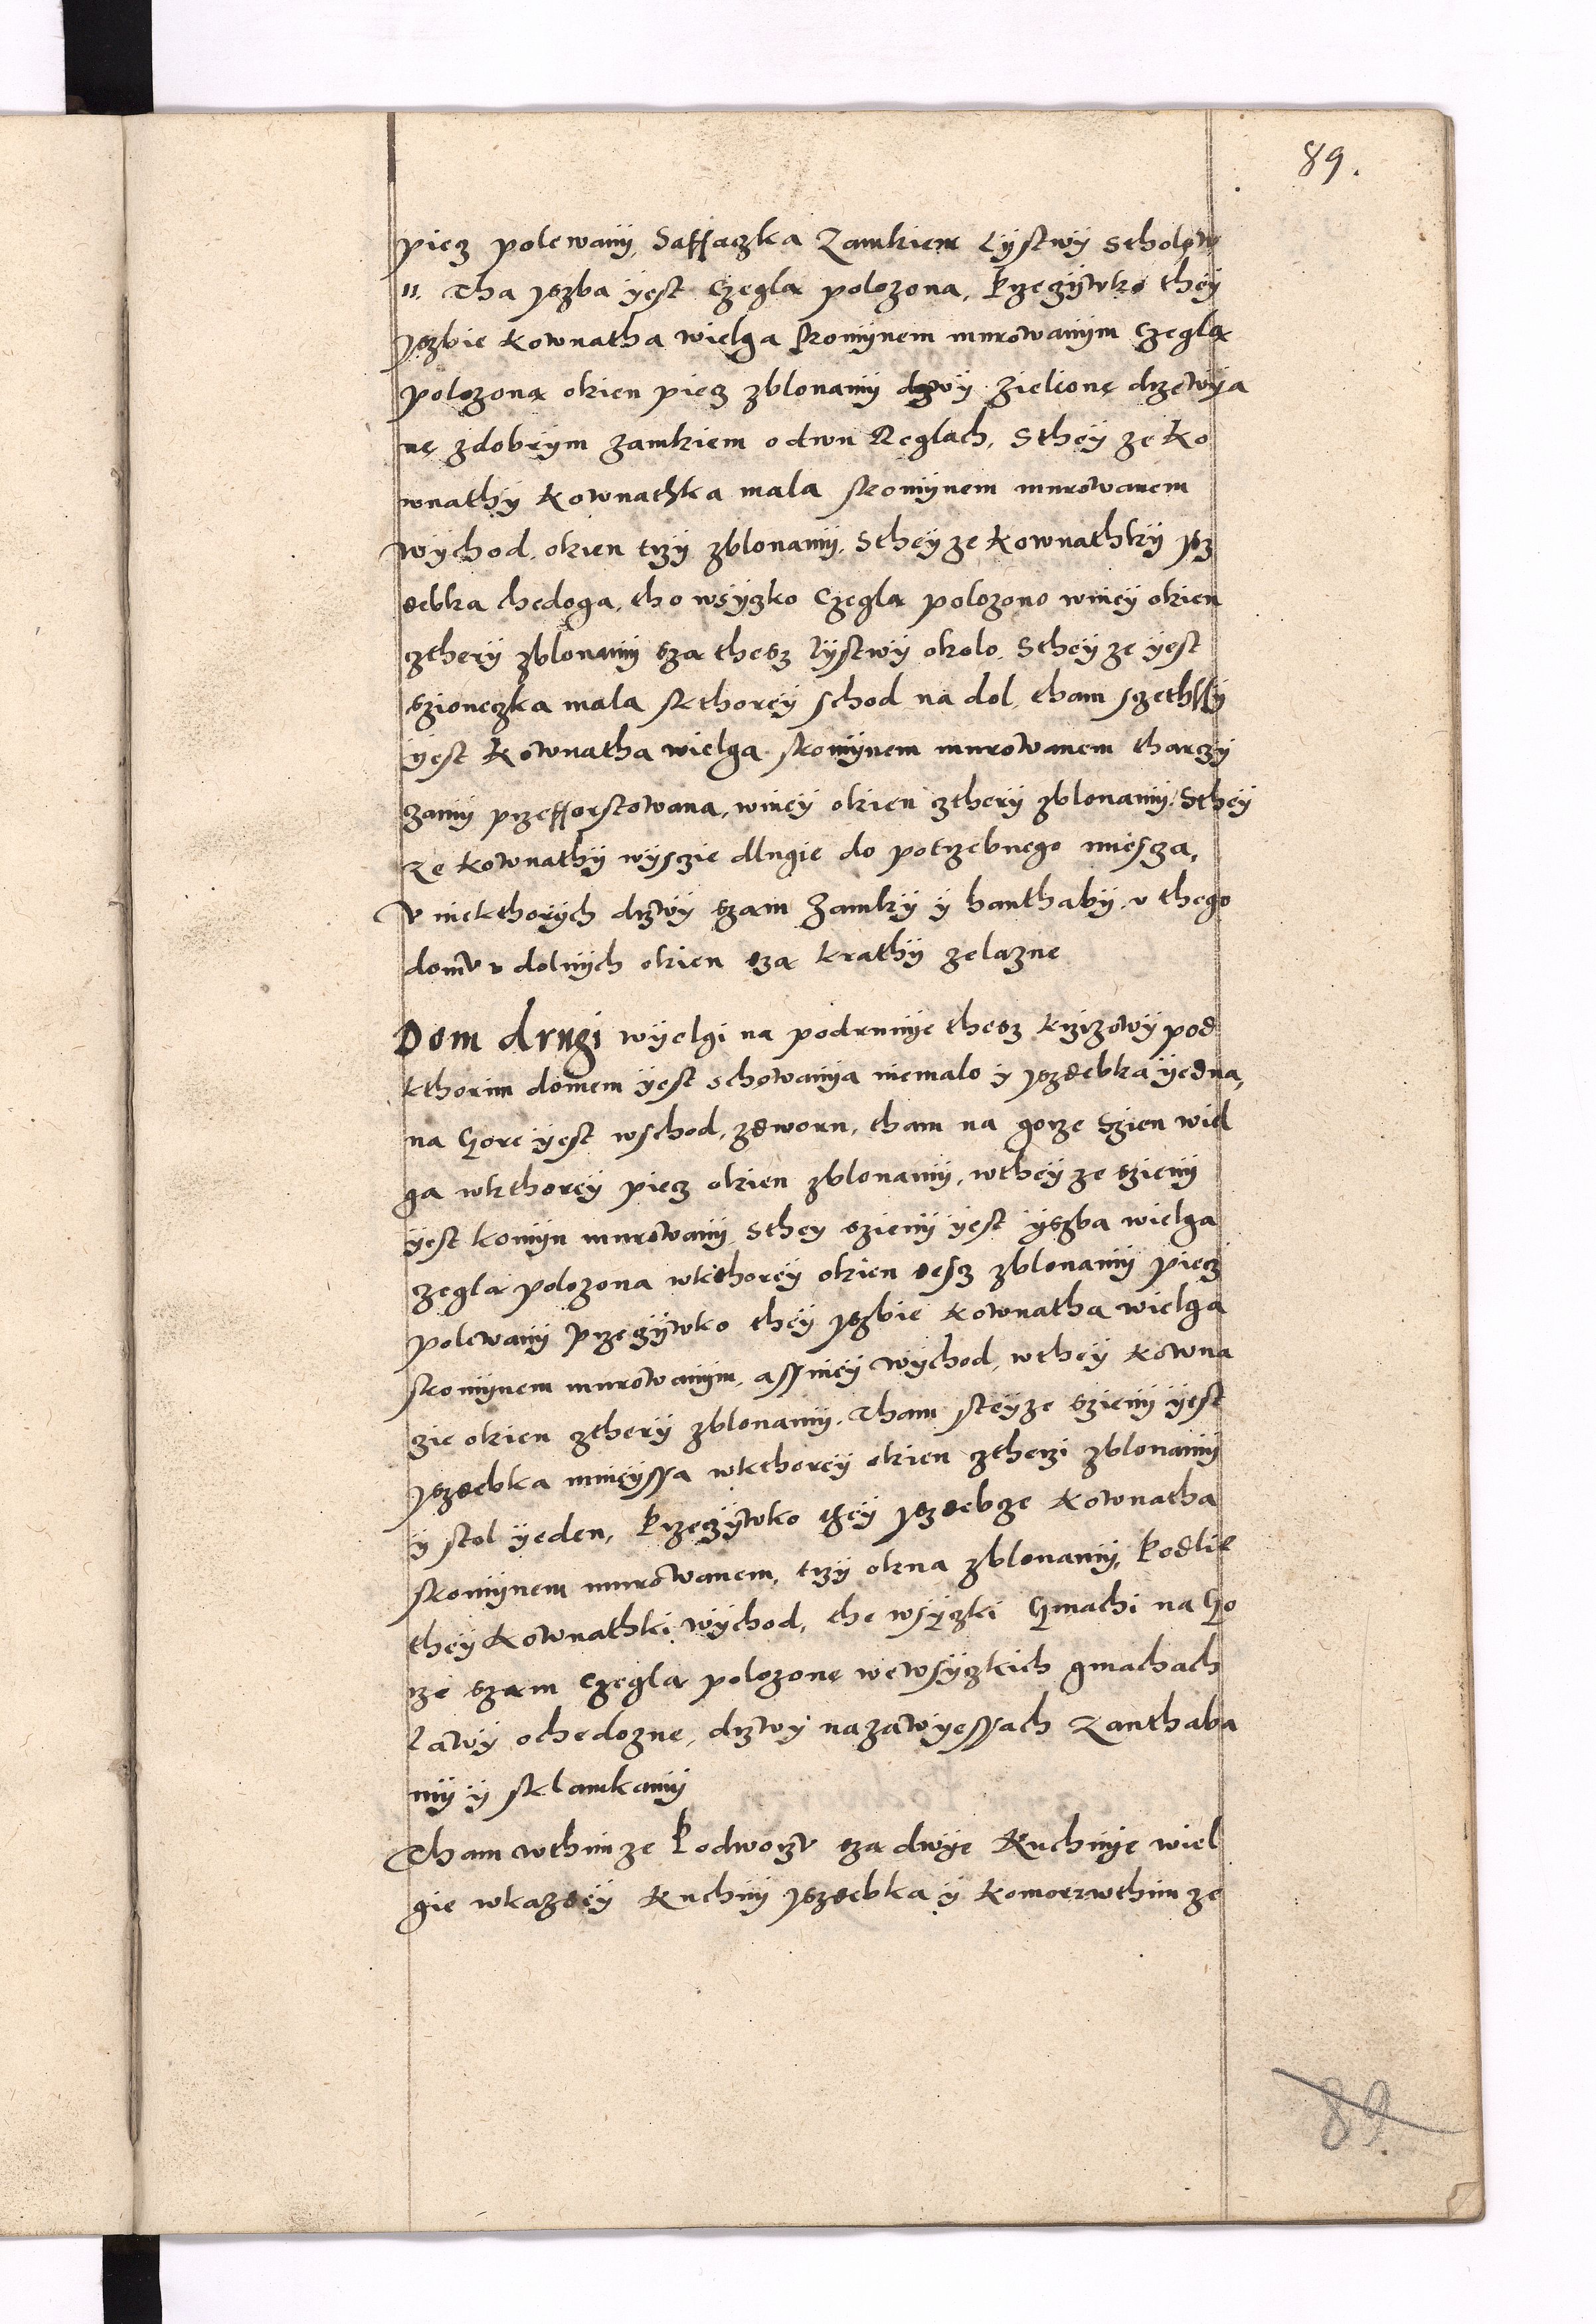 89.
piecz polewany, Saffaczka Zamkiem Lystwy Stholow
11. Tha yszba yest Czegla polozona, Przeczywko they
yszbie Kownatha wielga skomynem murowanym Czegla
polozona okien piecz zblonamy drzwy zielione drzewya
ne zdobrym zamkiem o dwu Reglach, Sthey ze Ko
wnathy Kownathka mala skomynem murowanem
wychod, okien trzy zblonamy, Sthey ze Kownathky ysz
debka chedoga, tho wsyzko Czegla polozono winey okien
czthery zblonamy sza thesz lystwy okolo, Sthey ze yest
szioneczka mala skthorey schod na dol, tham szethssy
yest Kownatha wielga skomynem murowanem tharczy
czamy przefforstowana, winey okien czthery zblonamy, Sthey
ze Kownathy wysczie dlugie do potrzebnego miescza,
V niekthorych drzwy szam Zamky y hanthaby, v thego
domv v dolnych okien sza krathy zelazne
Dom drugi wyelgi na podrumye thesz krzizowy pod
kthorim domem yest schowanya niemalo y yszdebka yedna,
na Gore yest wschod, zdworu, tham na gorze Szien wiel
ga wkthorey piecz okien zblonamy, wthey ze szieny
yest komyn murowany, Sthey szieny yest yszba wielga
czegla polozona wkthorey okien sescz zblonamy piecz
polewany przeczywko they yszbie Kownatha wielga
skomynem murowanym, assniey wychod, wthey Kowna
zie okien czthery zblonamy. Tham steyze szieny yest
yszdebka mnieyssa wkthorey okien czterzi zblonamy
y stol yeden, Przeczywko they yszdebcze Kownatha
skomynem murowanem, trzy okna zblonamy, Podlie
they Kownathki wychod, the wsyzki Gmachi na Go
rze szam Czegla polozone wewsyzkich gmachach
Lawy ochedozne, drzwy nazawyessach Zanthaba
my y sklamkamy
Tham wthimze Podworzv sza dwye Kuchnye wiel
gie wkazdey Kuchny yszdebka y Komora wthim ze
89.